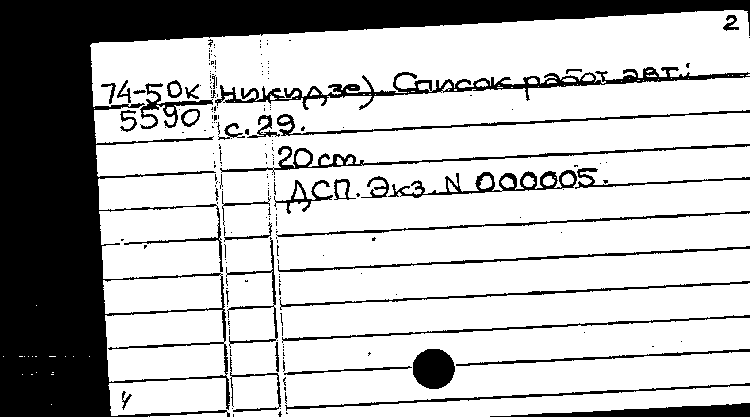 2
74-50к никидзе). Список работ авт.:
5590 с. 29.
20 cm.
ДСП. Экз. N 000005.